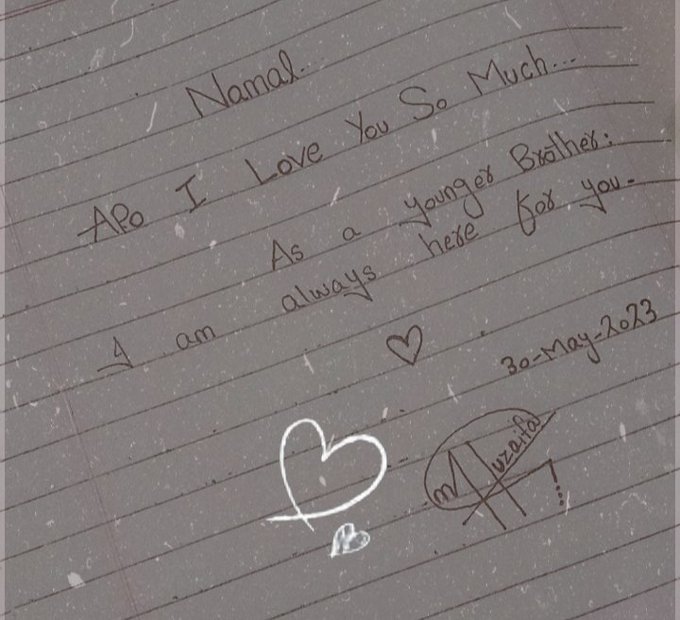 Namal...
APo I Love You So Much...
As a younger Brother.
I am always here for you.
30-May-2023
M Huzaifa